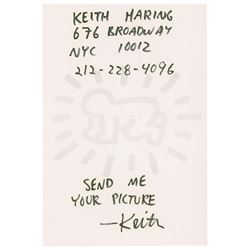 KEITH HARING
676 BROADWAY
NYC 10012
212-228-4096
SEND ME
YOUR PICTURE
—Keith